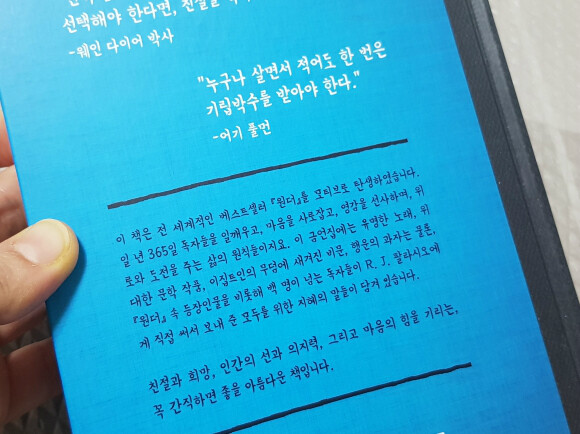 선택해야 한다면, 친절을
-웨인 다이어 박사
"누구나 살면서 적어도 한 번은
기립박수를 받아야 한다."
-어기 풀먼
이 책은 전 세계적인 베스트셀러 『원더』를 모티브로 탄생하였습니다.
일 년 365일 독자들을 일깨우고, 마음을 사로잡고, 영감을 선사하며, 위
로와 도전을 주는 삶의 원칙들이지요. 이 금언집에는 유명한 노래, 위
대한 문학 작품, 이집트인의 무덤에 새겨진 비문, 행운의 과자는 물론,
『원더』 속 등장인물을 비롯해 백 명이 넘는 독자들이 R. J. 팔라시오에
게 직접 써서 보내 준 모두를 위한 지혜의 말들이 담겨 있습니다.
친절과 희망, 인간의 선과 의지력, 그리고 마음의 힘을 기리는,
꼭 간직하면 좋을 아름다운 책입니다.